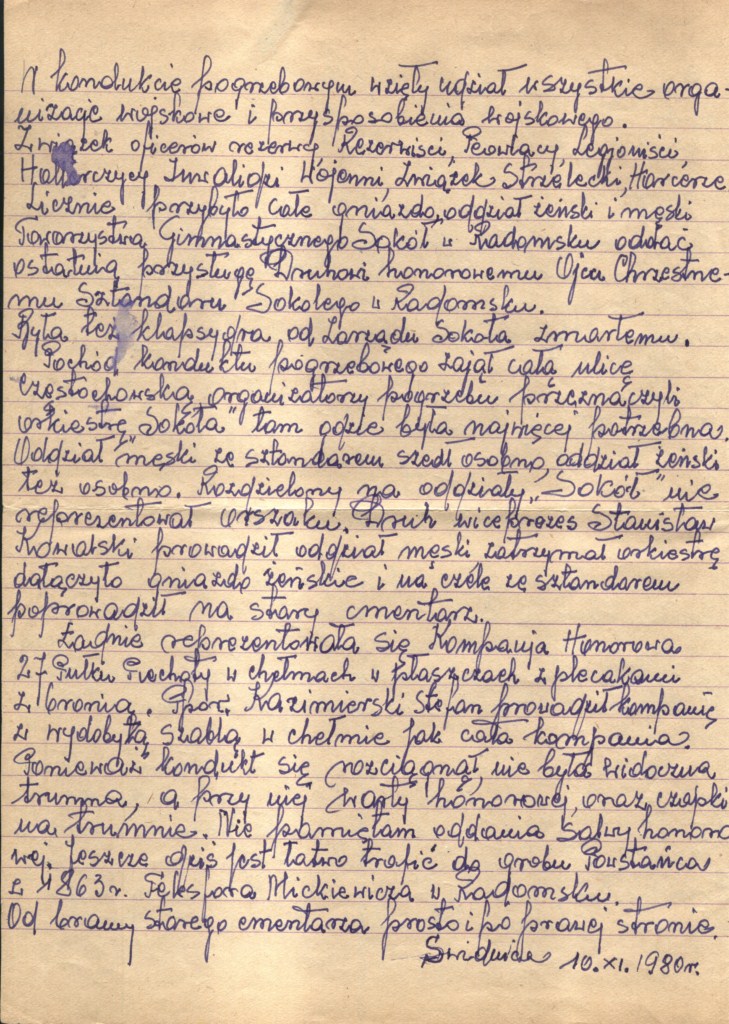 W kondukcie pogrzebowym wzięły udział wszystkie orga-
nizacje wojskowe i przysposobienia wojskowego.
Związek oficerów rezerwy Rezerwiści, Peowiacy Legjoniści
Hallerczycy Inwalidzi Wojenni, Związek Strzelecki, Harcerze
Licznie przybyło całe gniazdo, oddział żeński i męski
Towarzystwa Gimnastycznego Sokół w Radomsku oddać
ostatnią przysługę Druhowi honorowemu Ojcu Chrzestne-
mu Sztandaru Sokolego w Radomsku.
Była też klapsydra od Zarządu Sokoła zmarłemu.
Pochód konduktu pogrzebowego zajął całą ulicę
Częstochowską, organizatorzy pogrzebu przeznaczyli
orkiestrę „Sokoła" tam gdzie była najwięcej potrzebna.
Oddział męski ze sztandarem szedł osobno, oddział żeński
też osobno. Rozdzielony na oddziały „Sokół" nie
reprezentował orszaku. Druh wiceprezes Stanisław
Kowalski prowadził oddział męski zatrzymał orkiestrę
dołączyło gniazdo żeńskie i na czele ze sztandarem
poprowadził na stary cmentarz.
Ładnie reprezentowała się Kompanja Honorowa
27 Pułku Piechoty w chełmach w płaszczach z plecakami
z bronią. Ppor. Kazimierski Stefan prowadził kompanię
z wydobytą szablą w chełmie jak cała kompania.
Ponieważ kondukt się rozciągnął, nie była widoczna
trumna, a przy niej warty honorowej, oraz czapki
na trumnie. Nie pamiętam oddania salwy honoro
wej. Jeszcze dziś jest łatwo trafić do grobu Powstańca
z 1863 r. Telesfora Mickiewicza w Radomsku.
Od bramy starego cmentarza prosto i po prawej stronie.
Świdnica 10.XI.1980r.